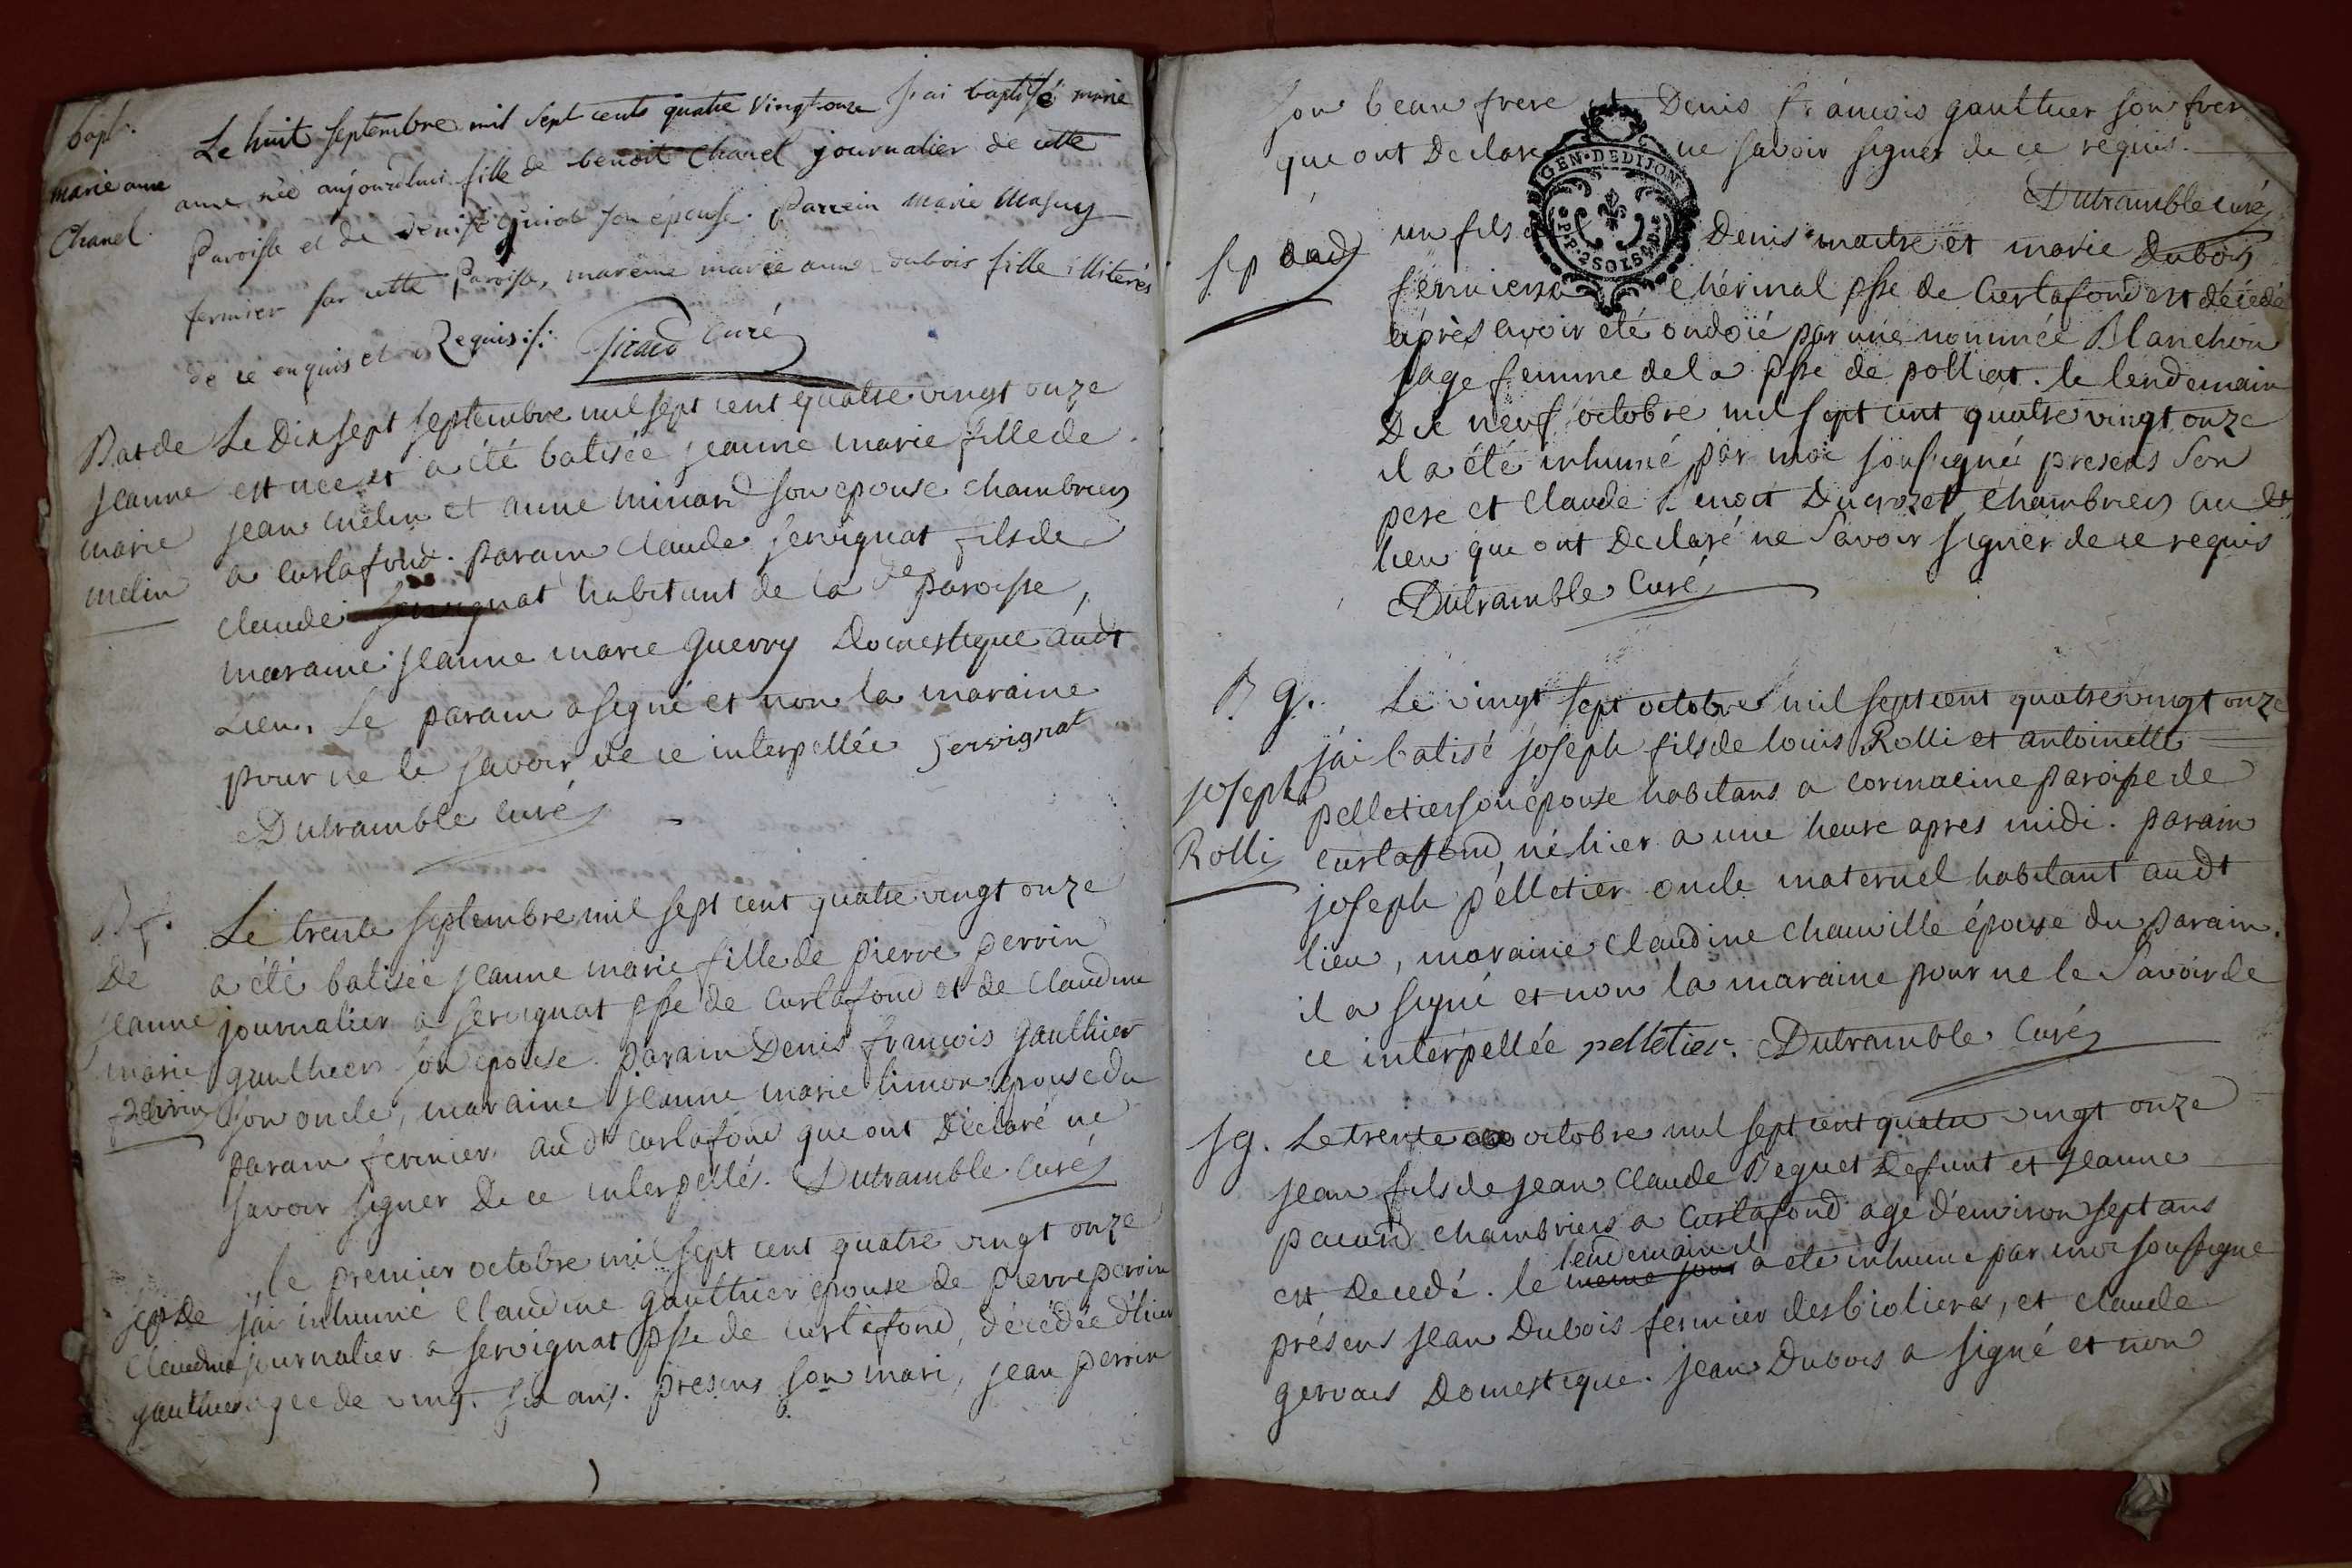 bapt.
marie anne
Chanel.
Le huit septembre mil sept cents quatre vingt-onze j'ai baptisé marie
anne née aujourd'hui fille de benoit Chanel journalier de cette
Paroisse et de Denise son épouse. Parrein marie
fermier sur cette Paroisse, mareine marie anne dubois fille illiterés
de ce enquis et Requis ./. Curé
Bat de
jeanne
marie
melin
Le Dix sept septembre mil sept cent quatre vingt onze
est née et a été batisée jeanne marie fille de
jean melin et anne minard son epouse chambriers
a curtafond. parain claude servignat fils de
claude servignat habitant de la de paroisse,
maraine jeanne marie guerry Domestique audt
Lieu. Le parain a signé et non la maraine
pour ne le savoir de ce interpellée servignat
Dutramble curé
De
jeanne
marie
perrin
Le trente septembre mil sept cent quatre vingt onze
a été batisée jeanne marie fille de pierre perrin
journalier a servignat psse de curtafond et de claudine
gauthier son epouse. parain Denis françois gaulthier
son oncle, maraine jeanne marie limon epouse du
parain fermier audt curtafond que ont Déclaré ne
savoir signer De ce interpellés. Dutramble Curé
sep de
Claudine
gauthier
le premier octobre mil sept cent quatre vingt onze
j'ai inhumé claudine gaulthier epouse de pierre perrin
journalier a servignat psse de curtafond, décédée d'hier
agée de vingt six ans. présens son mari, jean perrin
son beau frere et Denis françois gaulthier son frere
que ont Declaré ne savoir signer de ce requis.
Dutramble curé
GEN. DE DIJON
sep
un fils Denis maitre et marie Dubois
fermiers a chérinal psse de Curtafond est décédé
après avoir été ondoié par une nommée Blanchon
sage femme de la psse de polliat. le lendemain
Dix neuf octobre mil sept cent quatre vingt onze
il a été inhumé par moi soussigné presens son
pere et claude Ducrozet chambriers au dt
lieu que ont Declaré ne savoir signer de ce requis
Dutramble Curé
B g.
joseph
Rolli
Le vingt sept octobre mil sept cent quatre vingt onze
j'ai batisé joseph fils de louis Rolli et antoinette
pelletier son épouse habitans a cormacine paroisse de
curtafond, né hier a une heure apres midi. parain
joseph pelletier oncle maternel habitant audt
lieu, maraine claudine chanville épouse du parain.
il a signé et non la maraine pour ne le savoir de
ce interpellée pelletier. Dutramble Curé
sg.
Le trente octobre mil sept cent quatre vingt onze
jean fils de jean claude Peguet Defunt et jeanne
pacoud chambriers a Curtafond agé d'environ sept ans
est Decedé. le même jour lendemain il a été inhumé par moi soussigné
présens jean Dubois fermier des biolieres, et claude
gervais Domestique. jean Dubois a signé et non